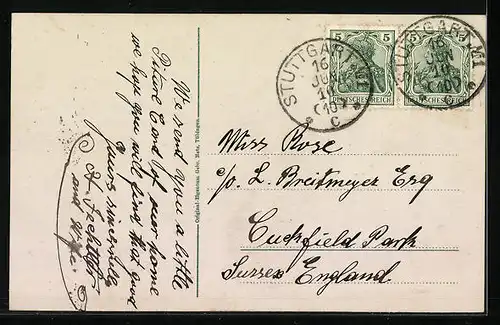 We send you a little
Picture Card of our home
we hope you will find that good
yours sincerely
and Wife
Original-Eigentum Gebr. Metz, Tübingen.
5 5
5 5
DEUTSCHES REICH
STUTTGART No1
16
JUN
10
C
STUTTGART No1
16
JUN
10
C
Miss Rose
c/o. L. Breitmeyer Esq
Cuckfield Park
Sussex England